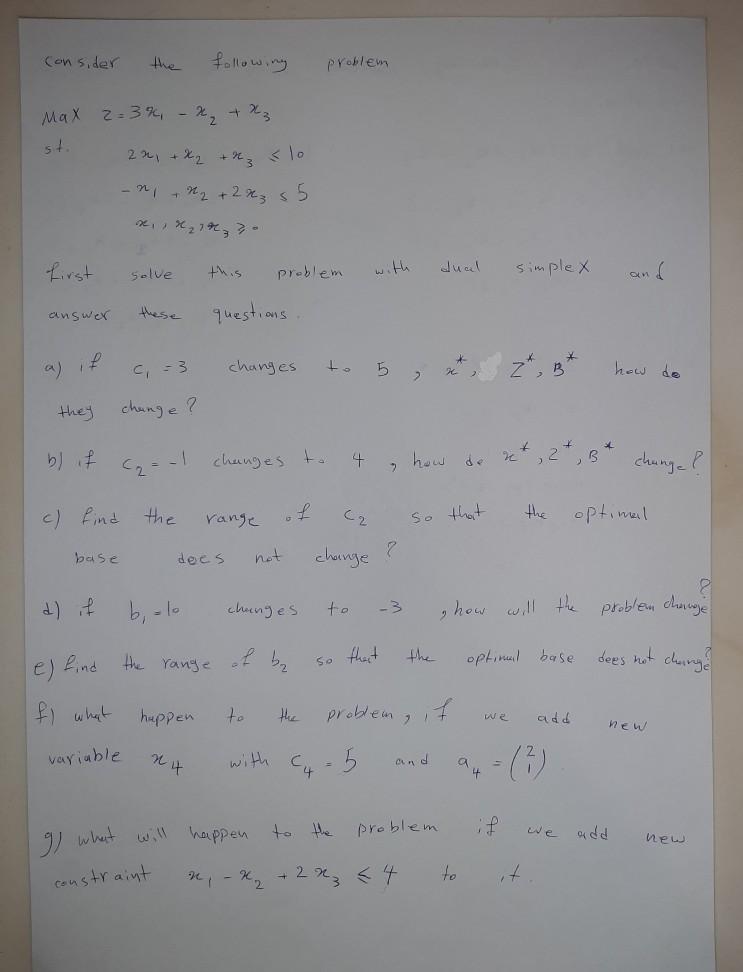 Consider the following problem
Max Z = 3x₁ - x₂ + x₃
st. 2x₁ + x₂ + x₃ ≤ 10
-x₁ + x₂ + 2x₃ ≤ 5
x₁, x₂, x₃ ≥ 0
first solve this problem with dual simplex and
answer these questions.
a) if c₁ = 3 changes to 5, x*, Z*, B* how do
they change?
b) if c₂ = -1 changes to 4, how do x*, z*, B* change?
c) find the range of c₂ so that the optimal
base does not change?
d) if b₁ = 10 changes to -3, how will the problem change?
e) find the range of b₂ so that the optimal base does not change?
f) what happen to the problem, if we add new
variable x₄ with c₄ = 5 and a₄ = (2 1)
g) what will happen to the problem if we add new
constraint x₁ - x₂ + 2x₃ ≤ 4 to it.